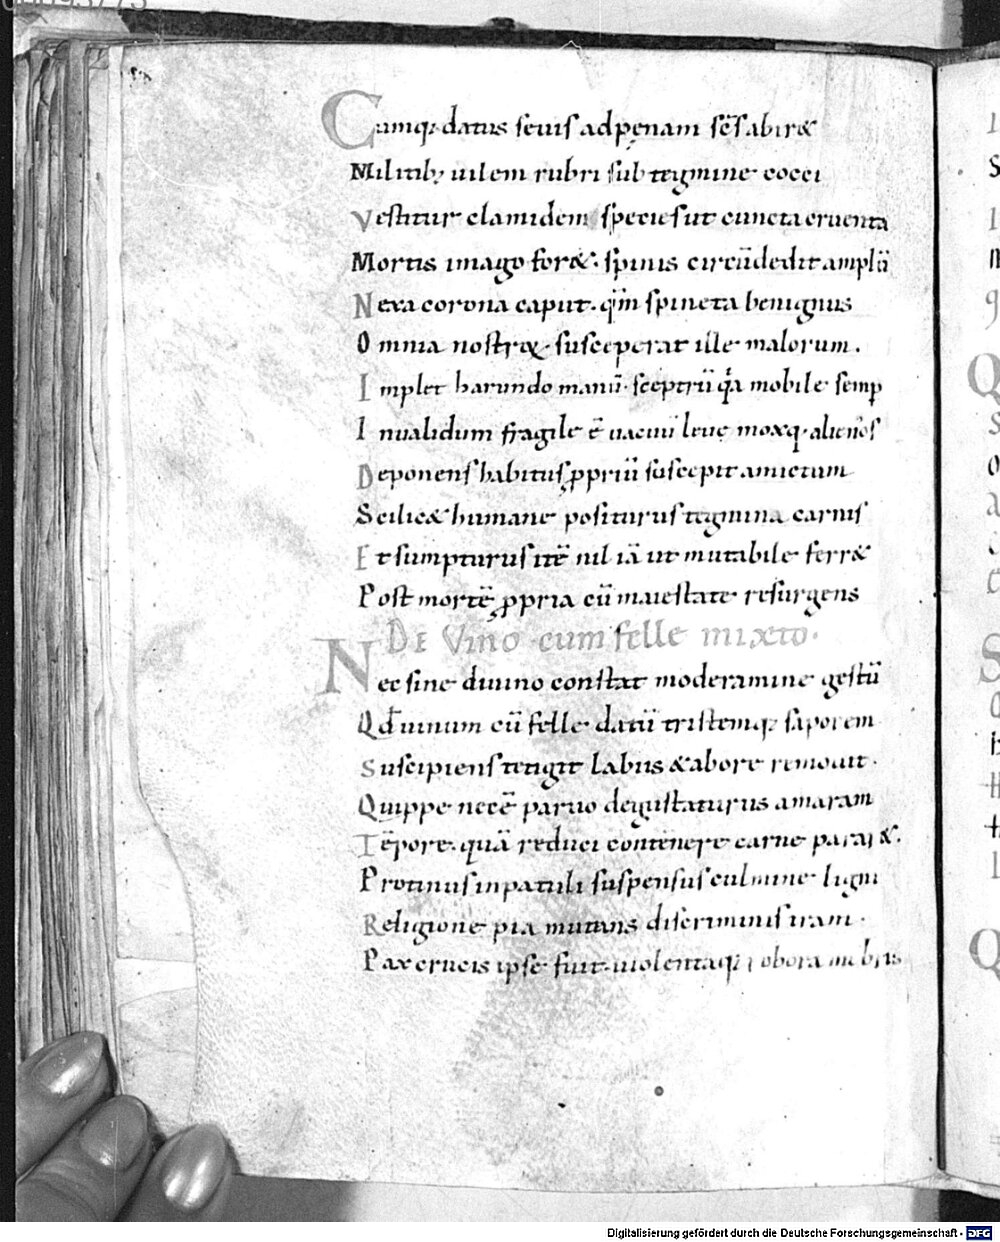 Cumq; datus seuis ad penam sc̄s abir&
Militib; uilem rubri sub tegmine cocci
Vestitur clamidem species ut cuncta cruenta
Mortis imago for&. spinis circūdedit amplū
Nexa corona caput. qm̄ spineta benignus
Omnia nostrę. susceperat ille malorum.
Implet harundo manū. sceptrū qa mobile semp
Inualidum fragile ē uacuū leue moxq. alienos
Deponens habitus ꝓpriū suscepit amictum
Scilic& humane positurus tegmina carnis
Et sumpturus itē nil iā ut mutabile ferr&
Post mortē ꝓpria cū maiestate resurgens
DE Vino cum felle mixto.
Nec sine diuino constat moderamine gestū
Qd̄ uinum cū felle datū tristemq; saporem
Suscipiens tetigit labiis & abore remouit.
Quippe necē paruo degustaturus amaram
Tēpore. quā reduci contēnere carne para&.
Protinus in patuli suspensus culmine ligni
Religione pia mutans discriminis iram.
Pax crucis ipse fuit. uiolentaq; robora membris
Digitalisierung gefördert durch die Deutsche Forschungsgemeinschaft - DFG